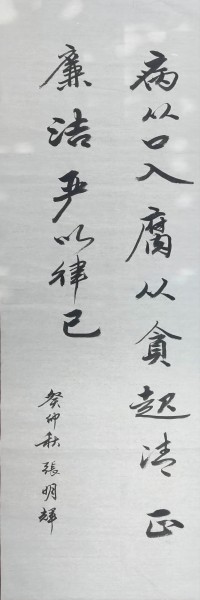 病从口入腐从贪起清正
廉洁严以律己
癸卯秋張明輝